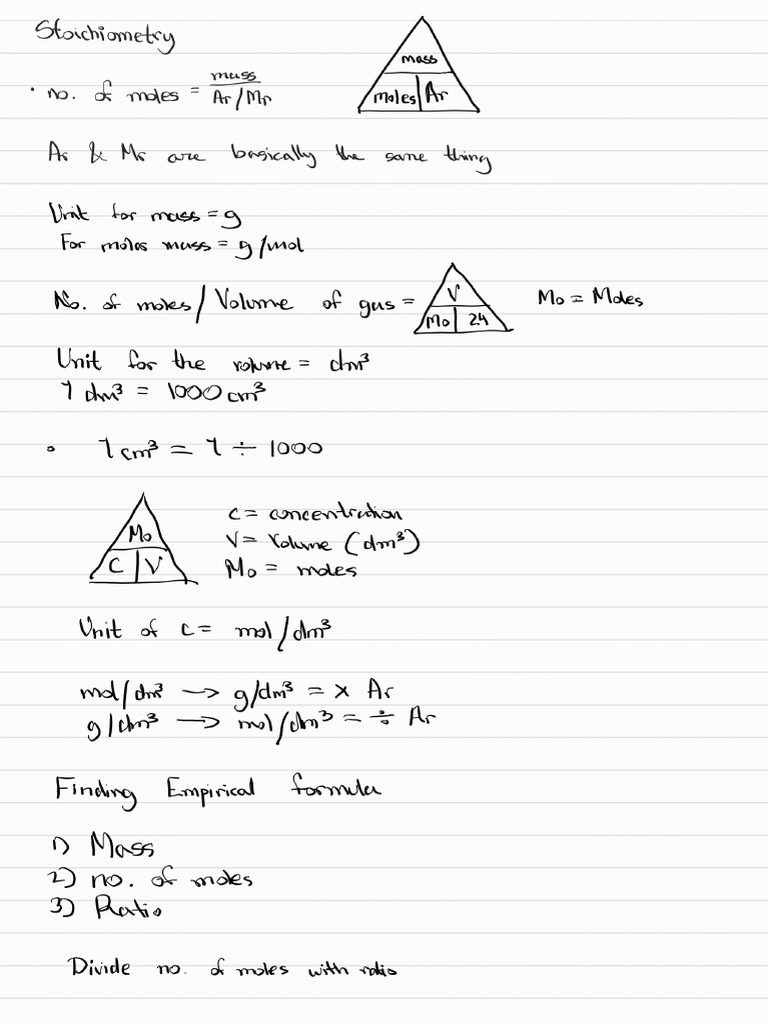 Stoichiometry
· no. of moles = mass / Ar/Mr
mass
moles | Ar
Ar & Mr are basically the same thing
Unit for mass = g
For moles mass = g/mol
No. of moles / Volume of gas =
V
Mo | 24
Mo = Moles
Unit for the volume = dm³
1 dm³ = 1000 cm³
• 1 cm³ = 1 ÷ 1000
Mo
C | V
C = concentration
V = Volume (dm³)
Mo = moles
Unit of C = mol/dm³
mol/dm³ → g/dm³ = × Ar
g/dm³ → mol/dm³ = ÷ Ar
Finding Empirical formula
1) Mass
2) no. of moles
3) Ratio
Divide no. of moles with ratio